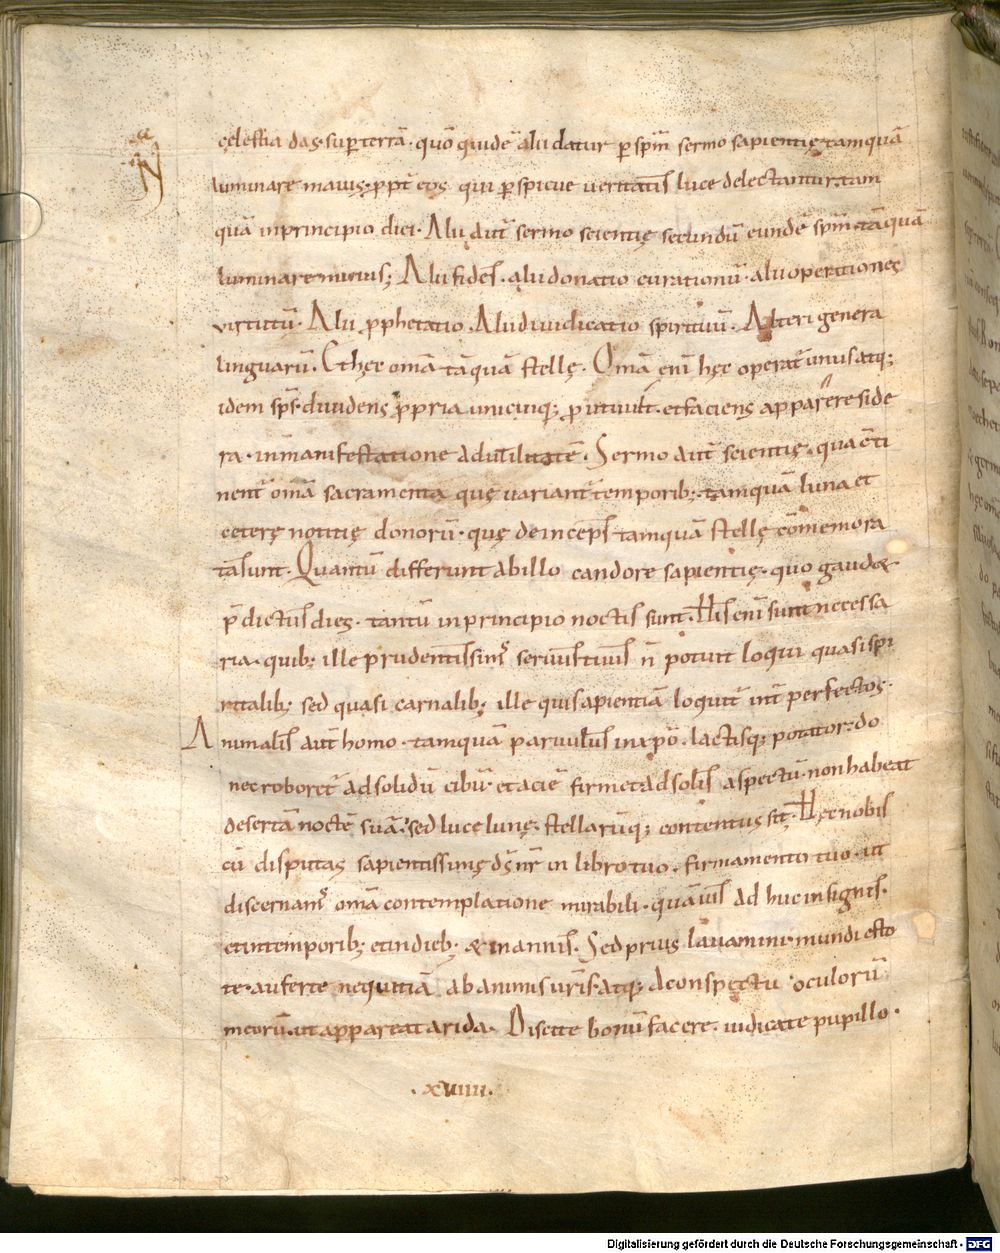 cęlestia das sup terrā · quō quidē alii datur p spm̄ sermo sapientię tamquā
luminare maius · ppt̄ eos qui pspicue ueritatis luce delectantur · tam
quā in principio diei · Alii aut̄ sermo scientię secundū eundē spm̄ · tāquā
luminare minus; Alii fides · alii donatio curationū · alii operationes
virtutū · Alii pphetatio · Alii diiudicatio spirituū · Alteri genera
linguarū · Et hęc omā tāquā stellę · Omā enī hęc operat̄ unus atq;
idem sps̄ · diuidens ppria unicuiq; put uult · et faciens apparere side
ra · in manifestatione ad utilitatē · Sermo aut̄ scientię · qua cōti
nent̄ omā sacramenta quę uariant̄ temporib; · tamquā luna et
cęterę notitię donorū · quę deinceps tamquā stellę cōmemora
ta sunt · Quantū differunt ab illo candore sapientię · quo gaud&
p̄dictus dies · tantū in principio noctis sunt · His enī sunt necessa
ria · quib; ille prudentissim' seruus tuus n̄ potuit loqui quasi spi
ritalib; sed quasi carnalib; ille qui sapientiā loquit̄ int̄ perfectos ·
Animalis aut̄ homo · tamquā paruulus in xpō · lactisq; potator · do
nec roboret̄ ad solidū cibū · et aciē firmet ad solis aspectū · non habeat
desertā noctē suā · sed luce lunę · stellarūq; contentus sit · Hęc nobis
cū disputas sapientissime ds̄ nr̄ in libro tuo · firmamento tuo · ut
discernam' omā contemplatione mirabili · quāuis adhuc in signis ·
et in temporib; et in dieb; · & in annis · Sed prius lauamini · mundi esto
te · auferte nequitiā ab animis uris · atq; a conspectu oculorū
meorū · ut appareat arida · Discite bonū facere · iudicate pupillo ·
· xviiii ·